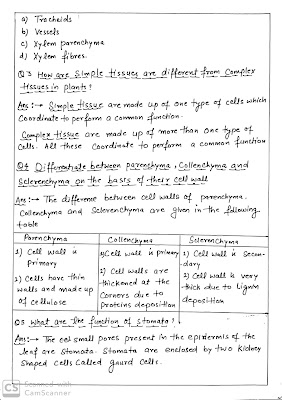 a) Tracheids
b) Vessels
c) Xylem parenchyma
d) Xylem fibres.
Q3 How are Simple tissues are different from Complex
tissues in plants?
Ans :→ Simple tissue are made up of one type of cells which
Coordinate to perform a common function.
Complex tissue are made up of more than one type of
Cells. All these Coordinate to perform a common function
Q4 Differentiate between parenchyma, Collenchyma and
Sclerenchyma on the basis of their cell wall
Ans :→ The difference between cell walls of parenchyma,
Collenchyma and Sclerenchyma are given in the following
table
Parenchyma Collenchyma Sclerenchyma
1) Cell wall is primary
2) Cells have thin walls and made up of cellulose
1) Cell wall is primary
2) Cell walls are thickened at the Corners due to proteins deposition
1) Cell wall is Secondary
2) Cell wall is very thick due to lignin deposition
Q5 What are the function of stomata?
Ans :→ The small pores present in the epidermis of the
leaf are Stomata. Stomata are enclosed by two kidney
Shaped Cells Called guard Cells.
CS Scanned with
CamScanner